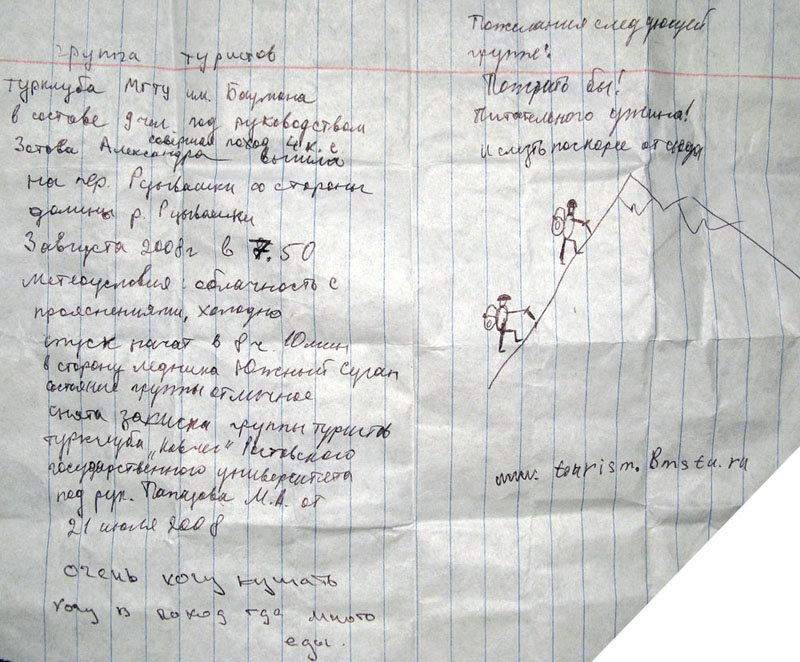 группа туристов
турклуба МГТУ им. Баумана
в составе 9 чел под руководством
совершая поход 4 к.с
Зотова Александра вышла
на пер. Рцывашки со стороны
долины р. Рцывашки
3 августа 2008г в 7.50
метеоусловия облачность с
прояснениями, холодно
спуск начат в 8ч. 10мин
в сторону ледника Южный Суган
состояние группы отличное
снята записка группы туристов
турклуба "Ковчег" Ростовского
государственного университета
под рук. М.А. от
21 июля 2008
очень хочу кушать
хочу в поход где много
еды.
Пожелания следующей
группе:
Пожрать бы!
Питательного ужина!
И слезть поскорее отсюда
www.tourism.Bmstu.ru